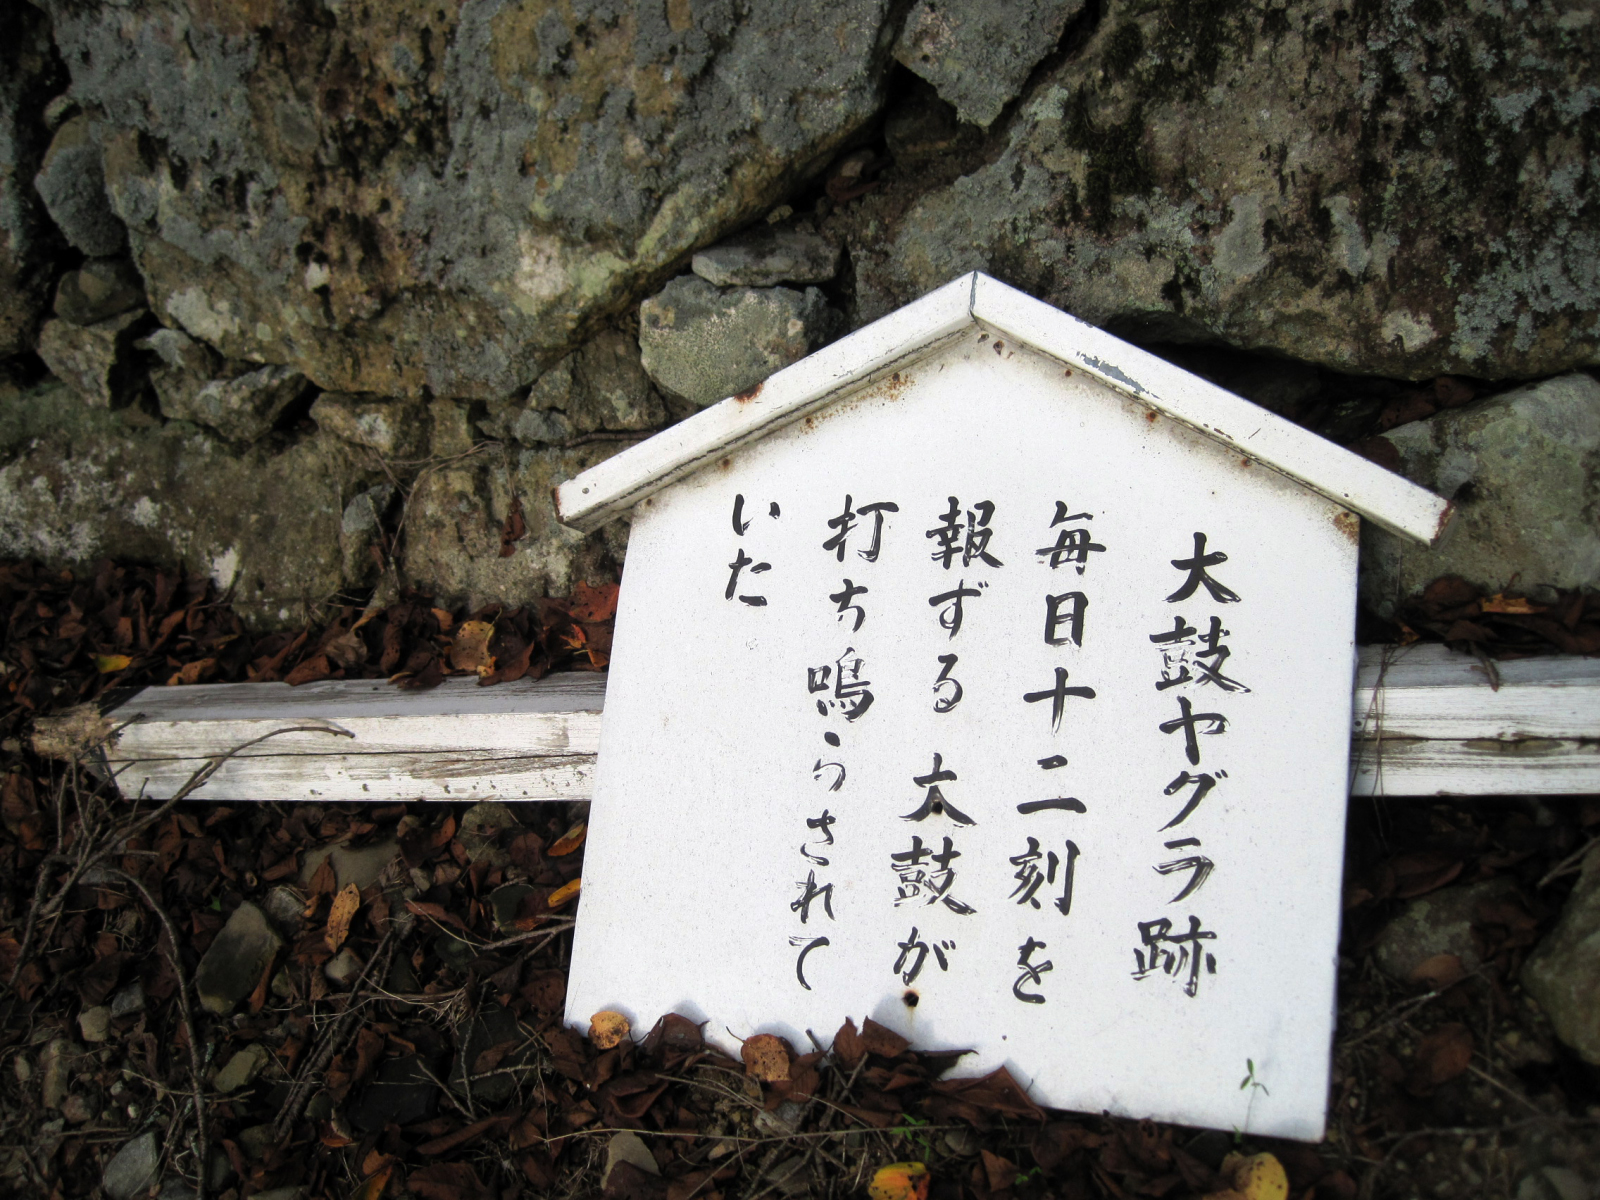 大鼓ヤグラ跡
毎日十二刻を
報ずる大鼓が
打ち鳴らされて
いた